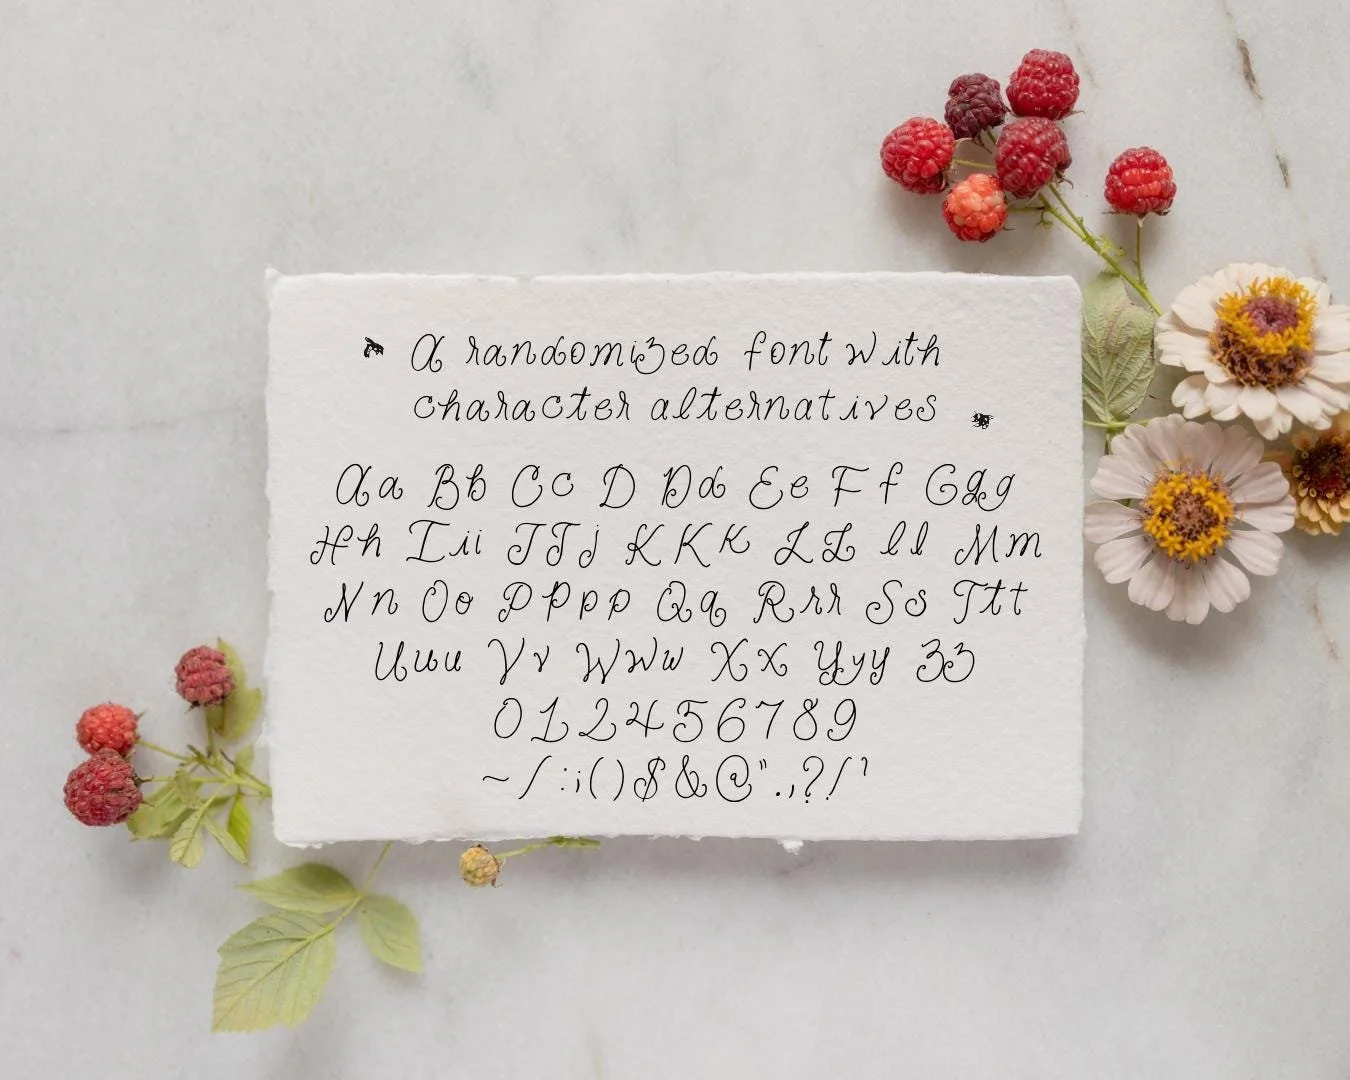 A randomized font with
character alternatives
Aa Bb Cc D Dd Ee Ff Ggg
Hh Iii JJj KKk LL ll Mm
Nn Oo PPpp Qq Rrr Ss Ttt
Uuu Vv WWww Xx Yyy Zz
0123456789
~/:;()$&@".,?/'